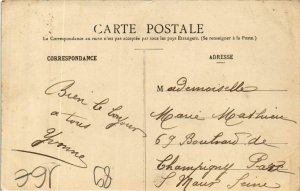 CARTE POSTALE
La Correspondance au recto n'est pas acceptée par tous les pays Étrangers. (Se renseigner à la Poste.)
CORRESPONDANCE
ADRESSE
Bien le bonjour
a tous
Yvonne
Mademoiselle
Marie Mathieu
69 Boulevard de
Champigny
St Maur Seine